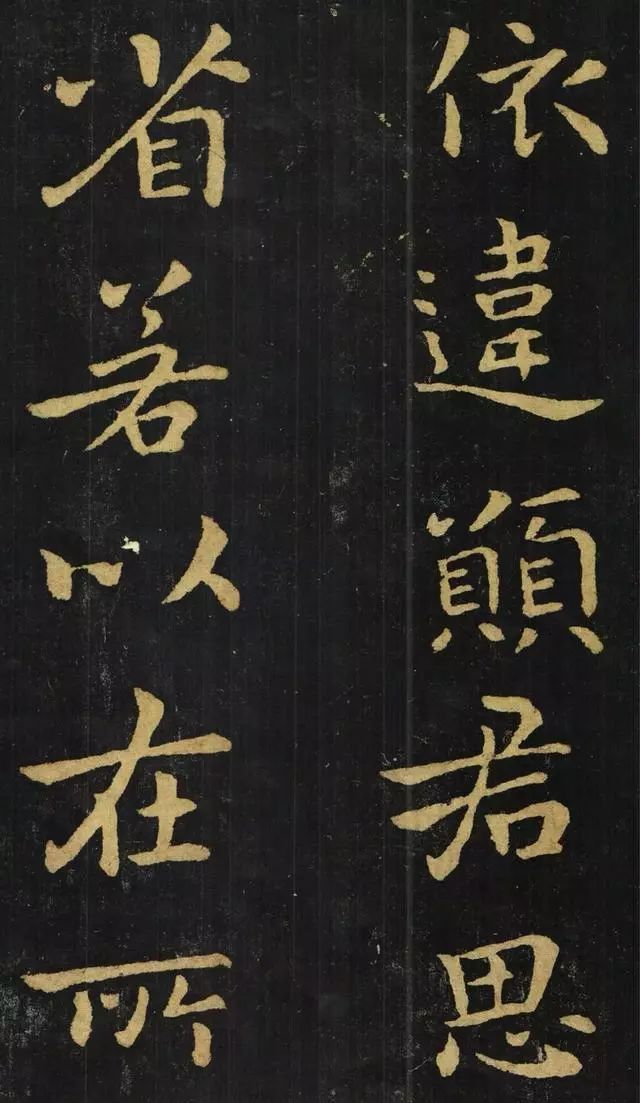 依違顚君思
省若以在所